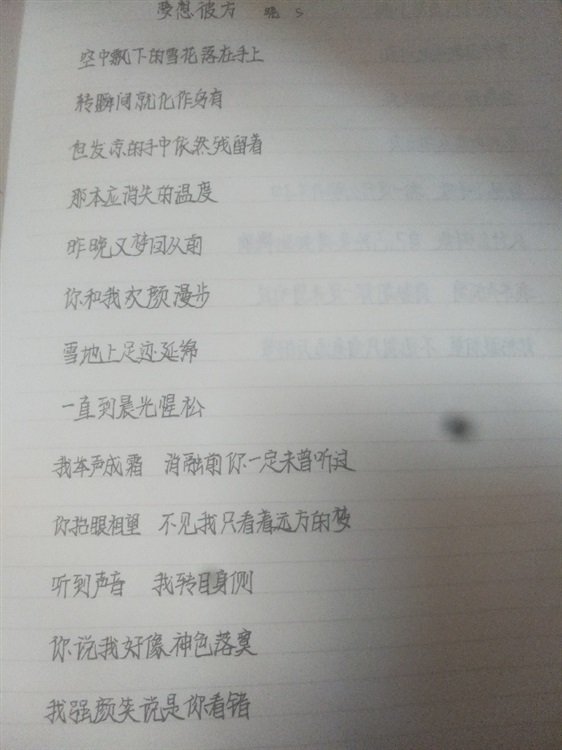 梦想彼方 晚 S
空中飘下的雪花落在手上
转瞬间就化作乌有
但发凉的手中依然残留着
那本应消失的温度
昨晚又梦回从前
你和我欢颜漫步
雪地上足迹延绵
一直到晨光惺松
我举声成霜 消融前你一定未曾听过
你抬眼相望 不见我只看着远方的梦
听到声音 我转目身侧
你说我好像神色落寞
我强颜笑说是你看错